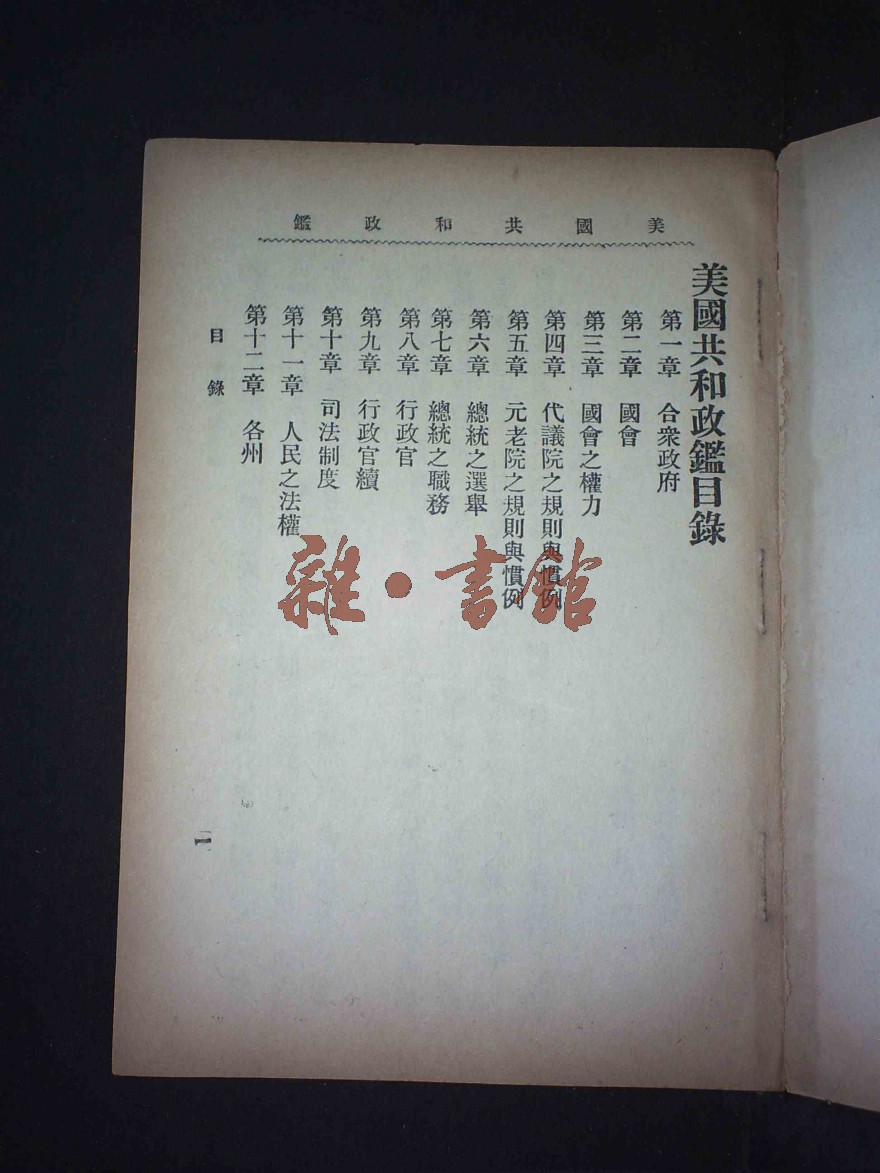 美國共和政鑑
美國共和政鑑目錄
第一章 合衆政府
第二章 國會
第三章 國會之權力
第四章 代議院之規則與慣例
第五章 元老院之規則與慣例
第六章 總統之選舉
第七章 總統之職務
第八章 行政官
第九章 行政官續
第十章 司法制度
第十一章 人民之法權
第十二章 各州
目錄
一
雜·書館